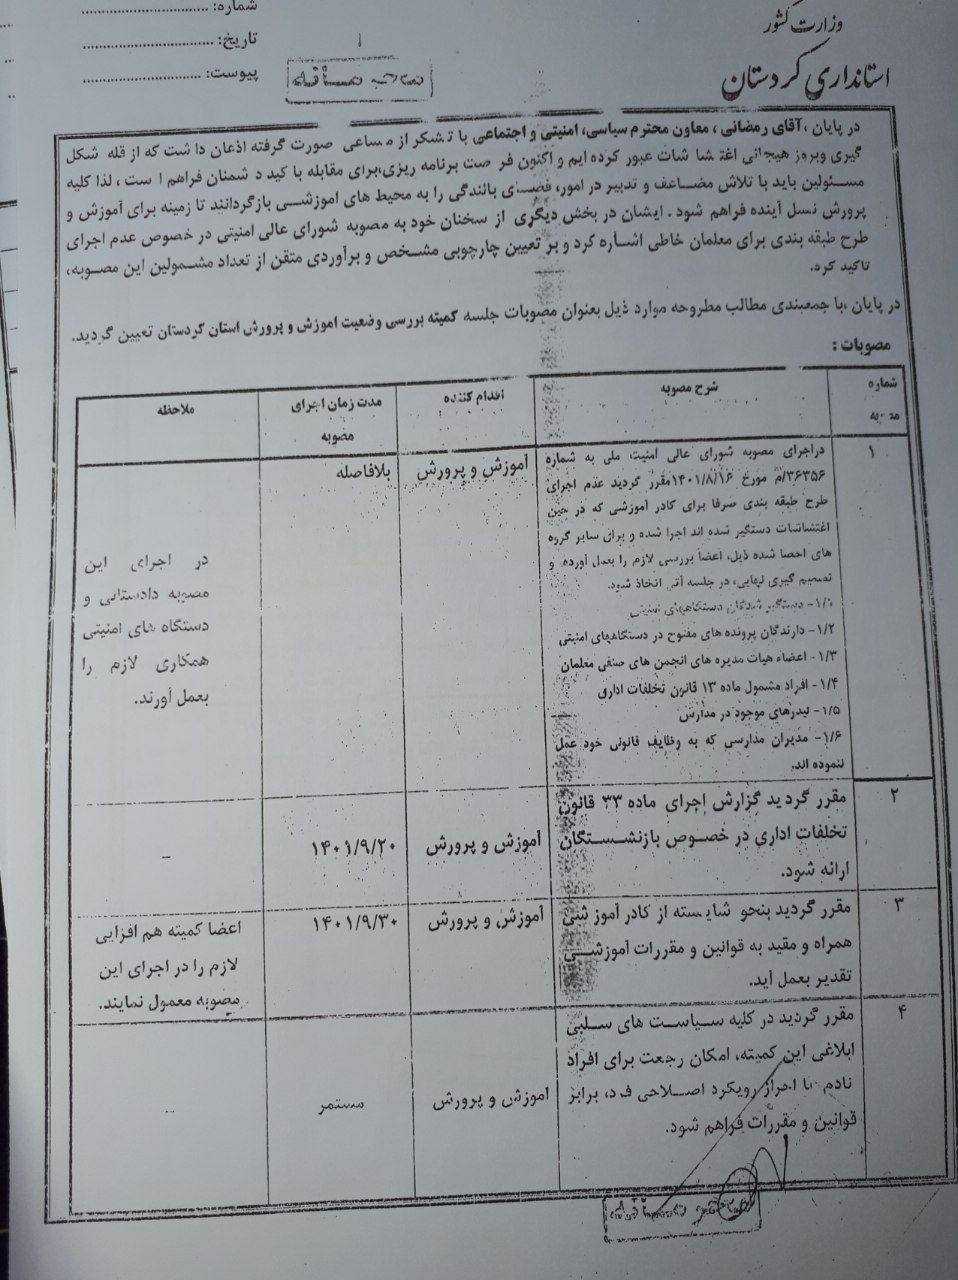 وزارت کشور
استانداری کردستان
شماره: ............
تاریخ: ............
پیوست: ............
در پایان ،آقای رمضانی ، معاون محترم سیاسی، امنیتی و اجتماعی با تشکر از مساعی صورت گرفته اذعان داشت که از قله شکل
گیری وبروز هیجانی اغتشاشات عبور کرده ایم و اکنون فرصت برنامه ریزی،برای مقابله با کید دشمنان فراهم است ، لذا کلیه
مسئولین باید با تلاش مضاعف و تدبیر در امور، فضای بالندگی را به محیط های اموزشی بازگردانند تا زمینه برای آموزش و
پرورش نسل آینده فراهم شود . ایشان در بخش دیگری از سخنان خود به مصوبه شورای عالی امنیتی در خصوص عدم اجرای
طرح طبقه بندی برای معلمان خاطی اشاره کرد و بر تعیین چارچوبی مشخص و برآوردی متقن از تعداد مشمولین این مصوبه،
تاکید کرد.
در پایان ،با جمعبندی مطالب مطروحه موارد ذیل بعنوان مصوبات جلسه کمیته بررسی وضعیت اموزش و پرورش استان کردستان تعیین گردید.
مصوبات :
شماره
شرح مصوبه
اقدام کننده
مدت زمان اجرای
مصوبه
ملاحظه
۱
دراجرای مصوبه شورای عالی امنیت ملی به شماره
۳۶۳۵۶/م مورخ ۱۴۰۱/۸/۱۶مقرر گردید عدم اجرای
طرح طبقه بندی صرفا برای کادر آموزشی که در حین
اغتشاشات دستگیر شده اند اجرا شده و برای سایر گروه
های احصا شده ذیل، اعضا بررسی لازم را بعمل آورده و
تصمیم گیری نهایی، در جلسه آتی اتخاذ شود.
۱/۱- دستگیر شدگان دستگاههای امنیتی
۱/۲- دارندگان پرونده های مفتوح در دستگاههای امنیتی
۱/۳- اعضاء هیات مدیره های انجمن های صنفی معلمان
۱/۴- افراد مشمول ماده ۱۳ قانون تخلفات اداری
۱/۵- لیدرهای موجود در مدارس
۱/۶- مدیران مدارسی که به وظایف قانونی خود عمل
ننموده اند.
آموزش و پرورش
بلافاصله
در اجرای این
مصوبه دادستانی و
دستگاه های امنیتی
همکاری لازم را
بعمل آورند.
۲
مقرر گردید گزارش اجرای ماده ۳۳ قانون
تخلفات اداری در خصوص بازنشستگان
ارائه شود.
آموزش و پرورش
۱۴۰۱/۹/۲۰
-
۳
مقرر گردید بنحو شایسته از کادر آموزشی
همراه و مقید به قوانین و مقررات آموزشی
تقدیر بعمل آید.
آموزش و پرورش
۱۴۰۱/۹/۳۰
اعضا کمیته هم افزایی
لازم را در اجرای این
مصوبه معمول نمایند.
۴
مقرر گردید در کلیه سیاست های سلبی
ابلاغی این کمیته، امکان رجعت برای افراد
نادم با احراز رویکرد اصلاحی فرد، برابر
قوانین و مقررات فراهم شود.
آموزش و پرورش
مستمر
-